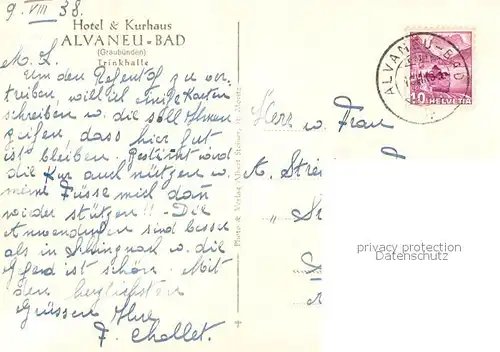 9. VIII 38.
Hotel & Kurhaus
ALVANEU-BAD
(Graubünden)
Trinkhalle
M. L.
Um den Regentag zu ver-
treiben, will ich einige Karten
schreiben u. die soll Ihnen
zeigen, dass hier gut
ist bleiben. wird
die Kur auch nützen u.
meine Füsse mich dan
wieder stützen!! - Die
Anwendungen sind besser
als in Schinznach u. die
Gegend ist schön. Mit
den herzlichsten
Grüssen Ihre
F. Chollet.
Photo & Verlag
ALVANEU-BAD
10 HELVETIA
Herr u. Frau
A. Strei
privacy protection
Datenschutz